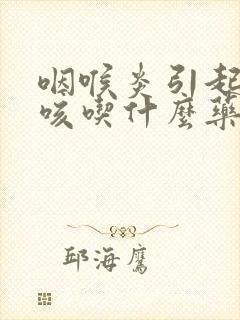 咽喉炎引起
咳喫什麼藥
邱海鷹